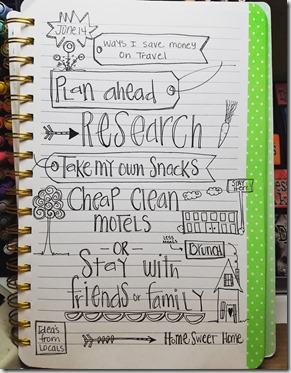 JUNE 14
Ways I save money
on Travel
Plan ahead
RESEARCH
Take my own Snacks
Cheap Clean
motels
STAY
Here
LESS
MEALS
BRUNCH
- OR -
Stay with
friends or family
Idea's
from
Locals
Home Sweet Home